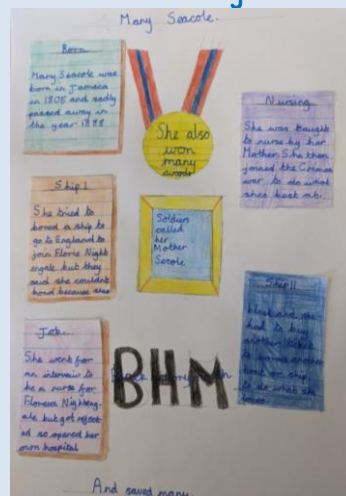 Mary Seacole.
Born
Mary Seacole was
born in Jamaca
in 1805 and sadly
passed away in
the year 1888
She also
won
many
awards
Nursing
She was taught
to nurse by her
Mother. She then
joined the Crimea
war to do what
shes best at.
Ship I
She tried to
board a ship to
go to England to
join Floris Night
engale but they
said she couldnt
board because
Soldiers
called
her
Mother
Secole
Ship II
black she
had to buy
another ticket
to
boat or ship
to do what she
loves.
Job
She went for
an interveiw to
be a nurse for
Florence Nighteng-
ale but got reject-
ed so opened her
own hospital
BHM
And saved many